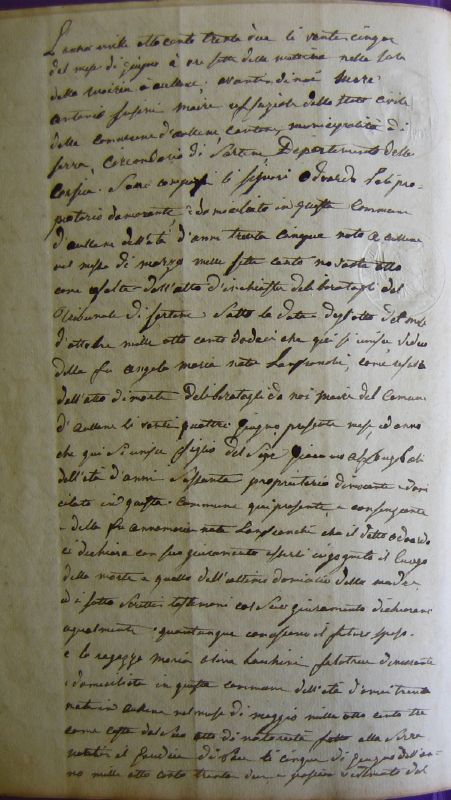 L'anno mille otto cento trenta due li venti cinque
del mese di giugno a ore sette della mattina nella sala
della mairia d'aullene, avanti di noi Marc'
antonio maire uffiziale dello stato civile
della commune d'aullene, canton municipalità di
serra, circondario di Sartene Dipartimento della
Corsica. Sono comparsi li signori Odoardo Poli pro-
prietario dimorante e domiciliato in questa Commune
d'aullene dell'età d'anni trenta cinque nato a aullene
nel mese di marzo mille sette cento novanta otto
come dall'atto d' deliberatogli dal
Tribunale di Sartene sotto la data degl'otto del mese
d'ottobre mille otto cento dodeci che qui si unisce
della fu angela maria nata Lanfranchi, come
dall'atto di morte deliberatogli da noi maire del Comune
d'aullene li venti quattro giugno presente mese, ed anno
che qui si unisce figlio del Sigr Poli
dell'età d'anni sessanta proprietario dimorante e domi
ciliato in questa commune qui presente, e consenziente
e della fu annamaria nata Lanfranchi che il detto odoardo
ci dichiara con suo giuramento esserli incognito il luogo
della morte e quello dell'ultimo domicilio della madre
ed i sotto scritti testimoni col suo giuramento dichiarano
egualmente quantunque conoscono il futuro sposo.
e la ragazza maria dimorante
e domiciliata in questa commune dell'età d'anni trenta
nata in aullene nel mese di maggio mille otto cento tre
come costa dal suo atto di notorietà fatto alla Serra
il giudice di Pace li cinque di giugno dell'an-
no mille otto cento trenta due e del